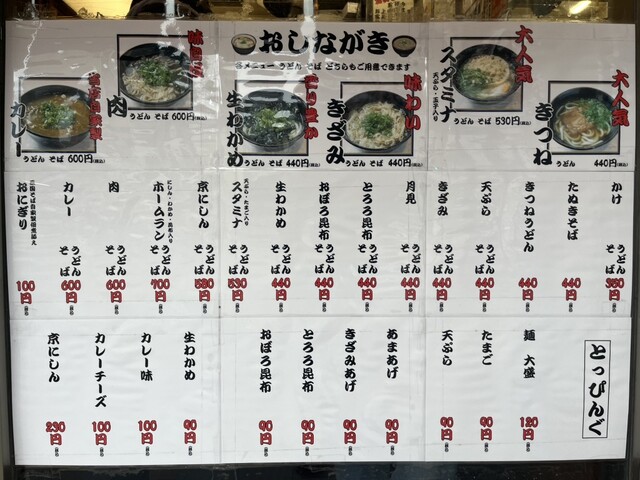 おしながき
各メニュー うどん そば どちらもご用意できます
大人気
きつね
うどん 440円(税込)
大人気
スタミナ
天ぷら・玉子入り
うどん そば 530円(税込)
味わい
きざみ
うどん そば 440円(税込)
生わかめ
うどん そば 440円(税込)
肉
うどん そば 600円(税込)
カレー
うどん そば 600円(税込)
かけ うどん そば 350円
たぬきそば 440円
きつねうどん 440円
天ぷら うどん そば 440円
きざみ うどん そば 440円
月見 うどん そば 440円
とろろ昆布 うどん そば 440円
おぼろ昆布 うどん そば 440円
生わかめ うどん そば 440円
スタミナ 天ぷら・たまご入り うどん そば 530円
京にしん うどん そば 580円
ホームラン にしん・わかめ・玉子入り うどん そば 700円
肉 うどん そば 600円
カレー うどん そば 600円
おにぎり 100円
とっぴんぐ
麺 大盛 120円
たまご 90円
天ぷら 90円
あまあげ 90円
きざみあげ 90円
とろろ昆布 90円
おぼろ昆布 90円
生わかめ 90円
カレー味 100円
カレーチーズ 100円
京にしん 230円